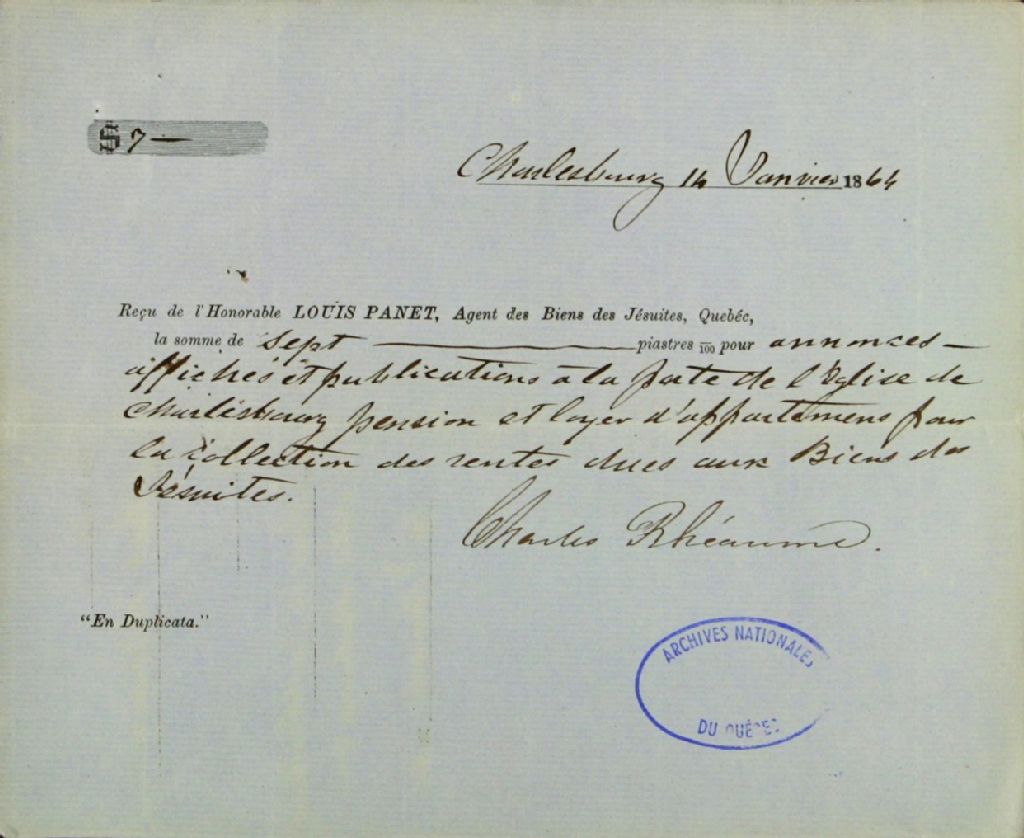 $ 7 —
Charlesbourg 14 Janvier 1864
Reçu de l'Honorable LOUIS PANET, Agent des Biens des Jésuites, Quebéc,
la somme de Sept — piastres /100 pour annonces —
affichés et publications à la porte de l'Eglise de
Charlesbourg pension et loyer d'appartemens pour
la collection des rentes dues aux Biens des
Jésuites.
Charles Rhéaume.
"En Duplicata."
ARCHIVES NATIONALES
DU QUÉBEC